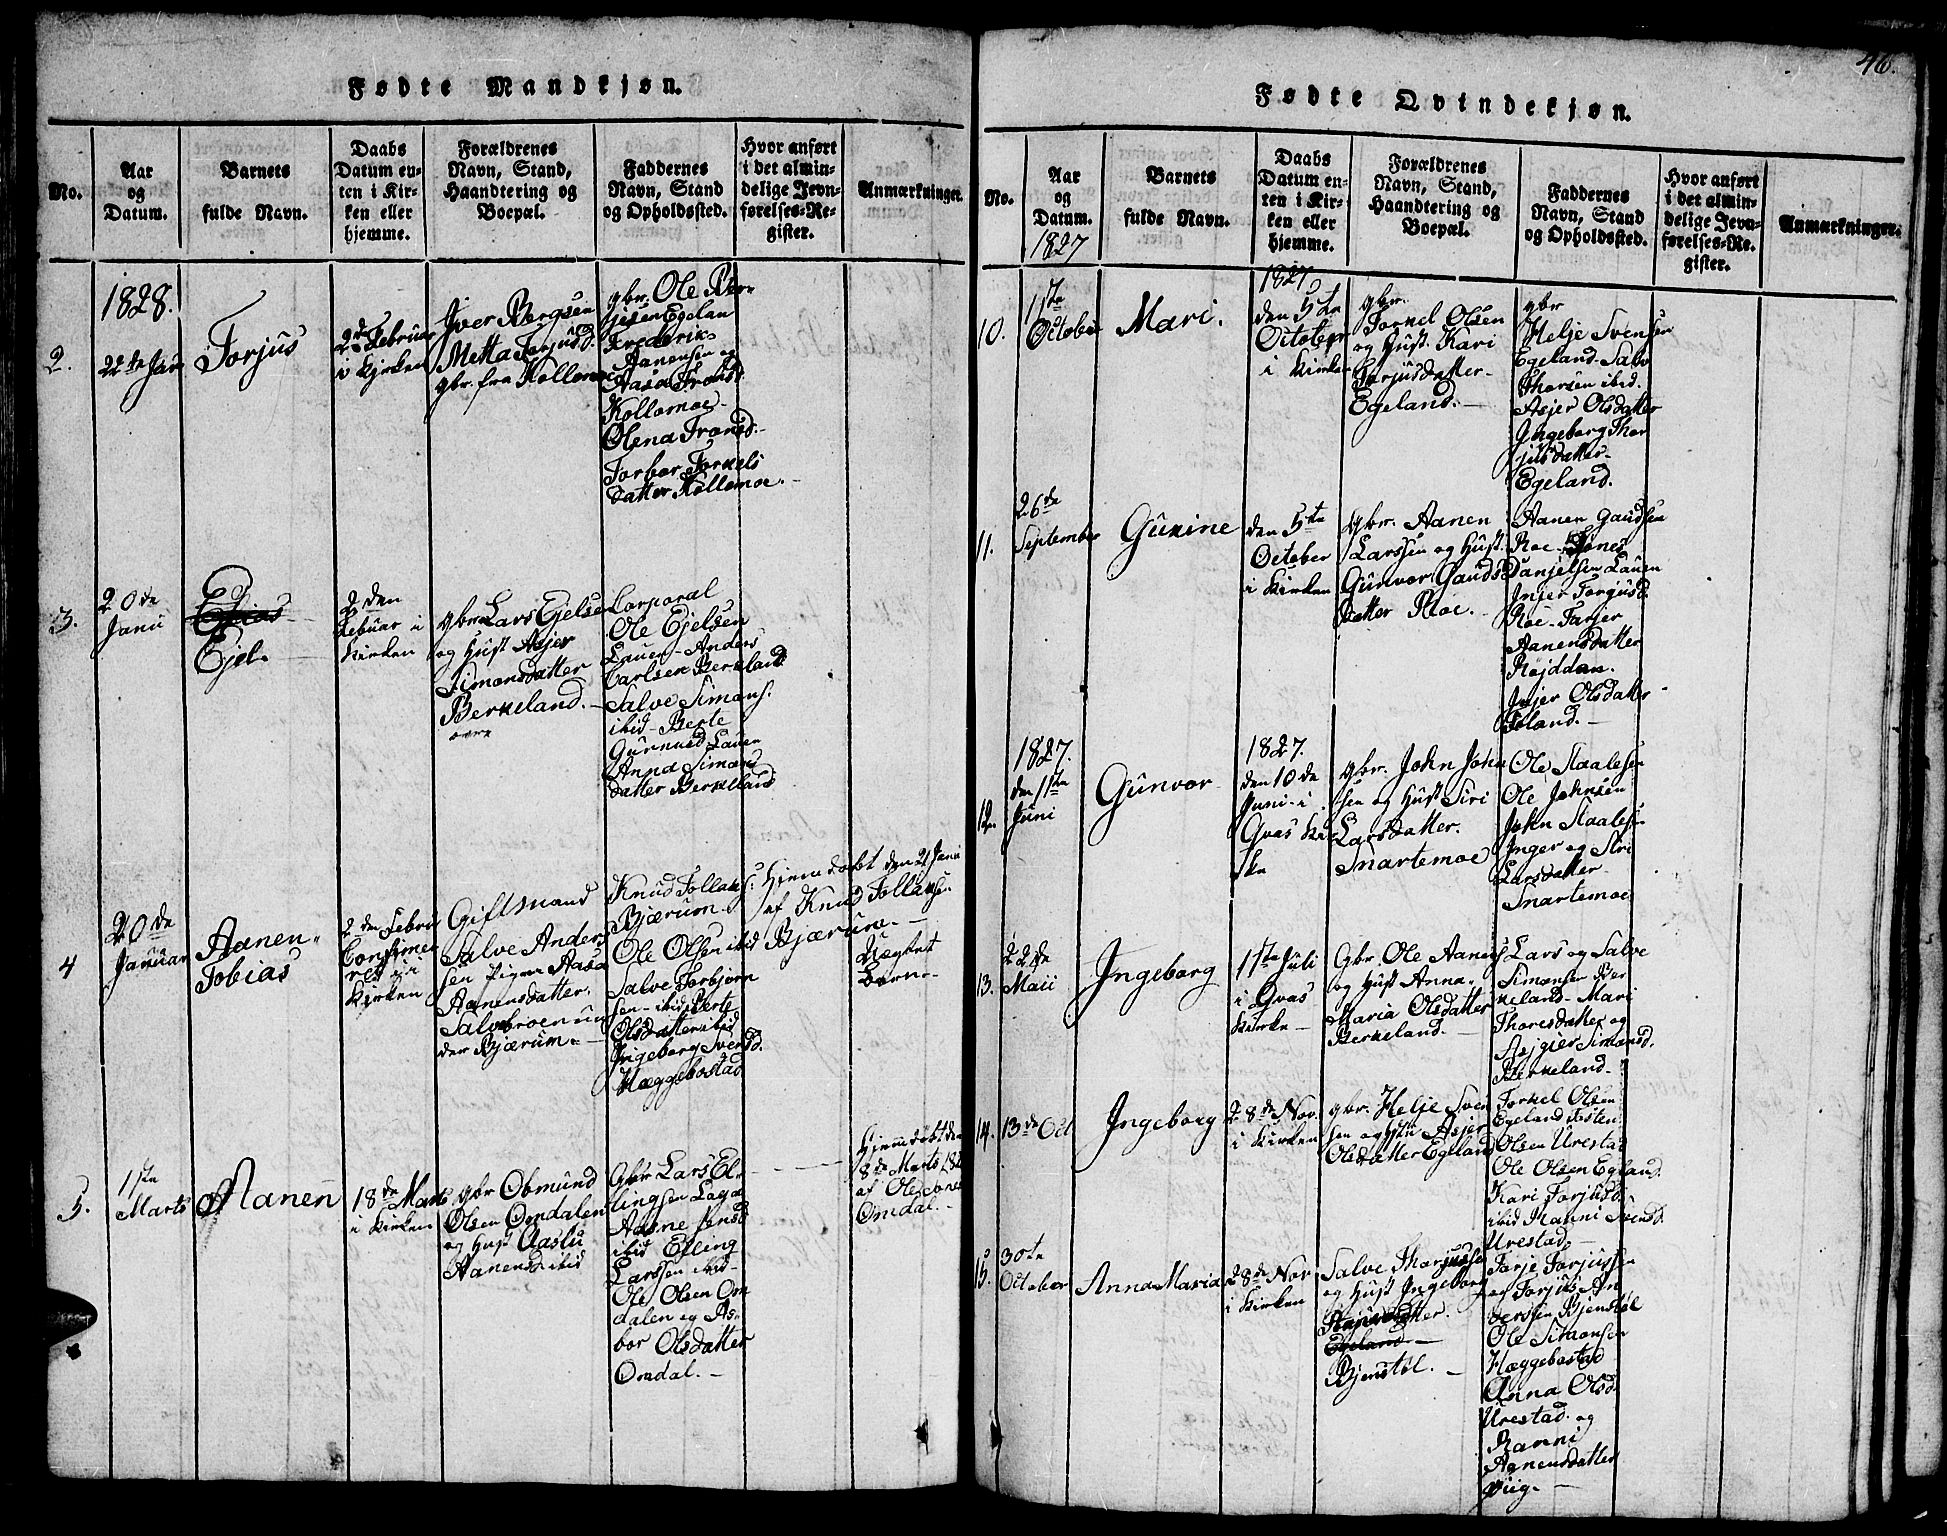 Fødte Mandkjøn.
No.
Aar
og
Datum.
Barnets
fulde Navn.
Daabs
Datum en-
ten i Kir-
ken eller
hjemme.
Forældrenes
Navn, Stand,
Haandtering og
Boepæl.
Faddernes
Navn, Stand
og Opholdssted.
Hvor anført
i det almin-
delige Jevn-
førelses-Re-
gister.
Anmærkninger.
2.
1828.
22de Jan
Torjus
2de Februar
i Kjrken
Jver Bergsen
Metta Torjusd.
gbr. fra Kollemoe
gbr. Ole Ber-
gjsen Egelan
Frederik
Aanensen og
Aasa Tronsd.
Kollomoe
Olena Tronsd.
Torbor Torkels
datter Kollomoe.
3.
20de
Janu
Ejel.
2den
Febuar i
Kirken
gbr Lars Ejelsen
og Hust Asjer
Simonsdatter
Berkeland.
Corporal
Ole Ejelsen
Lauen - Anders
Carlsen Berkeland
Salve Simons.
ibid - Berte
Lauen
Anna Simons
datter Berkeland
4
20de
Januar
Aanen
Tobias
2den Febru
Confirme
ret i
Kirken
Giftsmand
Salve Anders
sen Pigen Aasa
Aanensdatter
Salvebroen un
der Bjærum.
Knud Tollaks.
Bjærum.
Ole Olsen ibid
Salve Torbjorn
sen - ibid Berte
Olsdatter ibid
Ingeborg Svensd.
Hæggebostad
Hjemdøbt den 21 Janu
af Knud Tollaksen
Bjærum.
Uægte
Barn
5.
1ste
Marts
Aanen
18de Marts
i Kirken
gbr Obmund
Olsen Omdalen
og Hust Aaslu
Aanensd. ibid
Gbr Lars El-
lingsen
Aasne Jensd
ibid Elling
Larssen ibid
Ole Olsen Om
dalen og As-
bor Olsdatter
Omdal.
Hjemdøbt den
8de Marts 182
af Ole
Omdal.
46.
Fødte Qvindekjøn.
No.
Aar
og
Datum.
1827
Barnets
fulde Navn.
Daabs
Datum en-
ten i Kir-
ken eller
hjemme.
Forældrenes
Navn, Stand,
Haandtering og
Boepæl.
Faddernes
Navn, Stand
og Opholdssted.
Hvor anført
i det almin-
delige Jevn-
førelses-Re-
gister.
Anmærkninger.
10.
1ste
October
Mari.
1827
den 5te
October
i Kirken
gbr.
Torkel Olsen
og Hust. Kari
Torjusdatter
Egeland.
gbr
Helje Svensen
Egeland - Salv
Thorsen ibid.
Asjer Olsdatter
Ingeborg Thor
jusdatter
Egeland.
11.
26de
September
Gunine
den 5te
October
i Kirken
gbr. Aanen
Larssen og Hust.
Gunvor Gauds
datter Roe.
Aanen Gaudsen
Roe - Tønes
Danjelsen Lauen
Injer Torgusd.
Roe - Tarjer
Aanensdatter
Røjddan.
Injer Olsdatter
12.
1827.
den 1ste
Juni
Gunvor
1827.
den 10de
Juni - i
Qvas Kir
ke
gbr. John John
sen og Hust Siri
Larsdatter.
Snartemoe
Ole Staalesen
Ole Johnsen
John Staalesen
Inger og Siri
Larsdatter
Snartemoe
13.
22de
Maii
Ingeborg
1ste Juli
i Qvas
Kirke
Gbr. Ole Aanens.
og Hust Anna
Maria Olsdatter
Berkeland.
Lars og Salve
Simonsen Ber
keland - Mari
Thoresdatter og
Asjier Simonsd.
Berkeland.
14.
13de Oct
Ingeborg
28de Nov.
i Kirken
gbr. Helje Sven
sen og Hust. Asjer
Olsdatter Egeland
Torkel Olsen
Egeland Tosten
Olsen Urestad
Ole Olsen Egland.
Kari Torjusd.
ibid Ranni Svensd.
Urestad.
15.
30te
October
Anna Maria
28de Nov
i Kirken
Salve Thorjussen
og Hust Ingeborg
Egeland
Bjenstøl.
Tarje Torjussen
og Torjus An
derssen Bjenstøl
Ole Simonsen
Hæggebostad
Anna Olsd.
Urestad og
Ranni
Aanensdatter